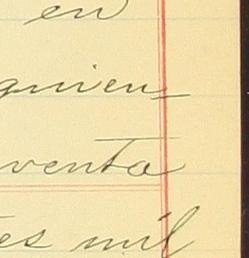 en
quien-
venta
es mil